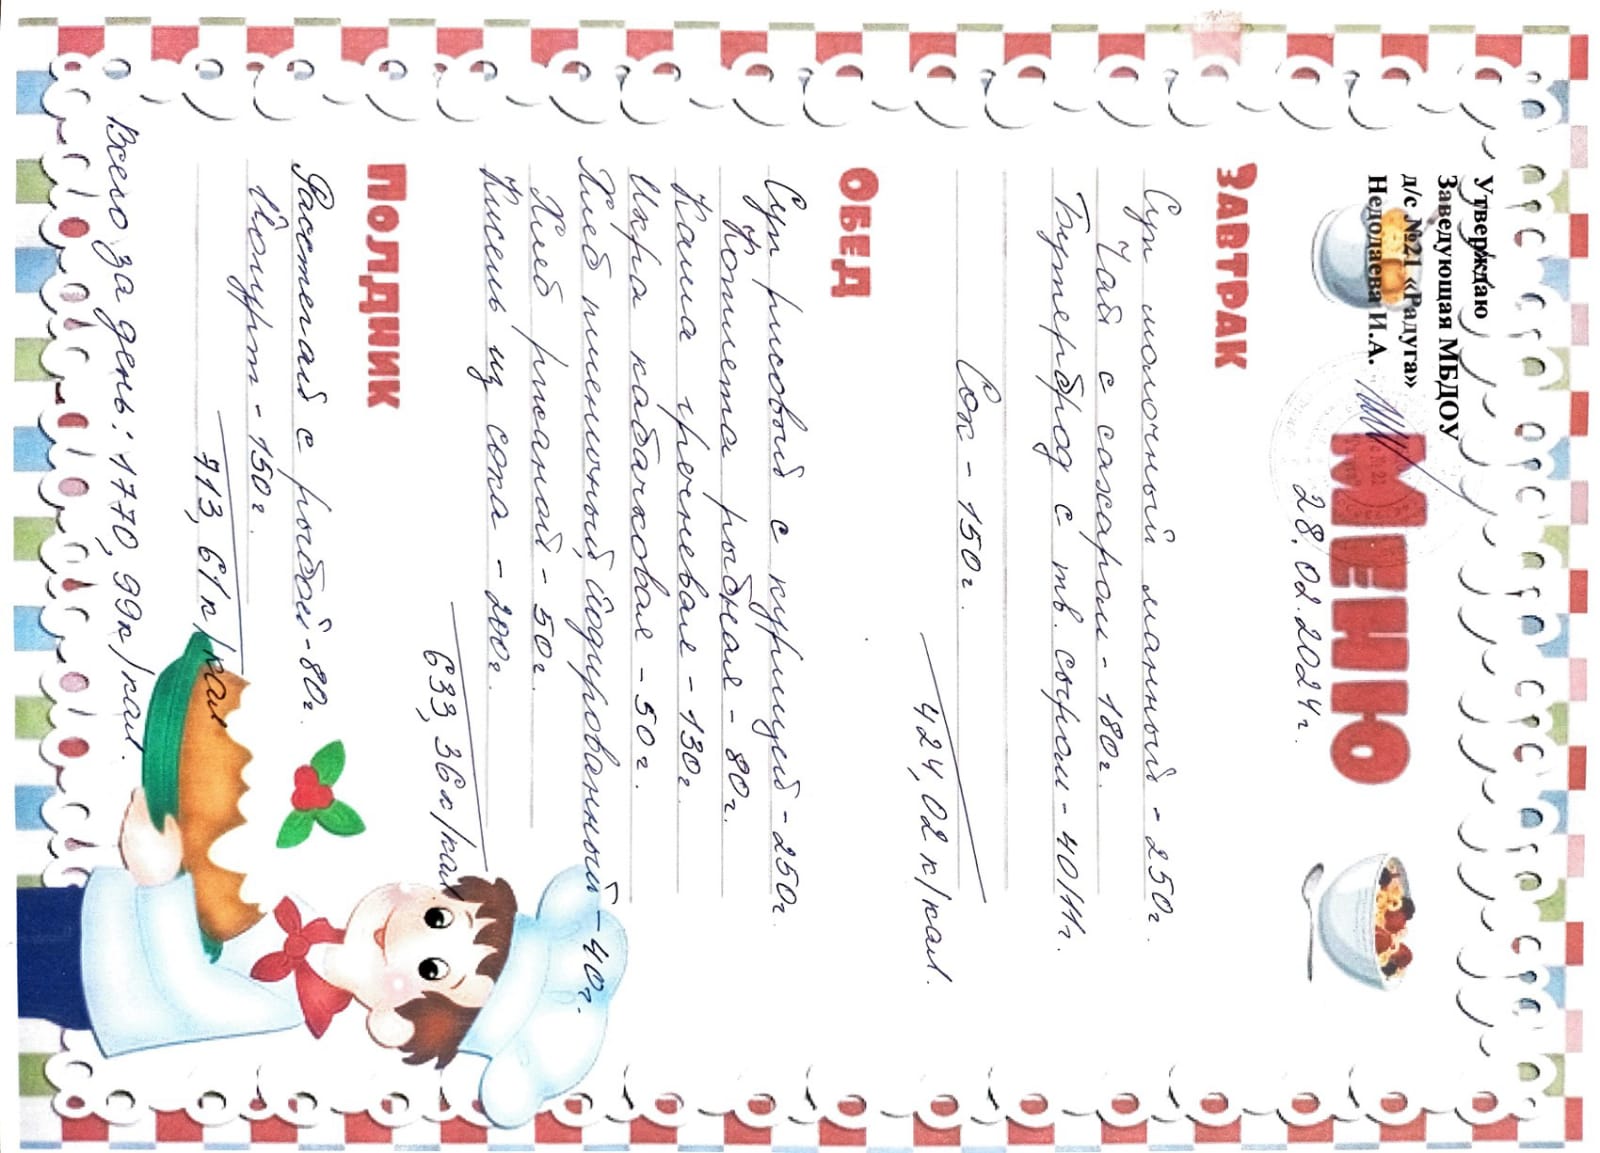 Утверждаю
Заведующая МБДОУ
д/с №21 «Радуга»
Недодаева И.А.
МЕНЮ
28.02.2024г.
ЗАВТРАК
Суп молочный манный - 250г.
Чай с сахаром - 180г.
Бутерброд с тв. сыром - 40/11г.
Сок - 150г.
424,02 к/кал.
ОБЕД
Суп рисовый с курицей - 250г.
Котлета рыбная - 80г.
Каша гречневая - 130г.
Икра кабачковая - 50г.
Хлеб пшеничный, йодированный - 40г.
Хлеб ржаной - 50г.
Кисель из сока - 200г.
633,36 к/кал
ПОЛДНИК
Расстегай с рыбой - 80г.
Йогурт - 150г.
713,61 к/кал
Всего за день: 1770,99 к/кал.